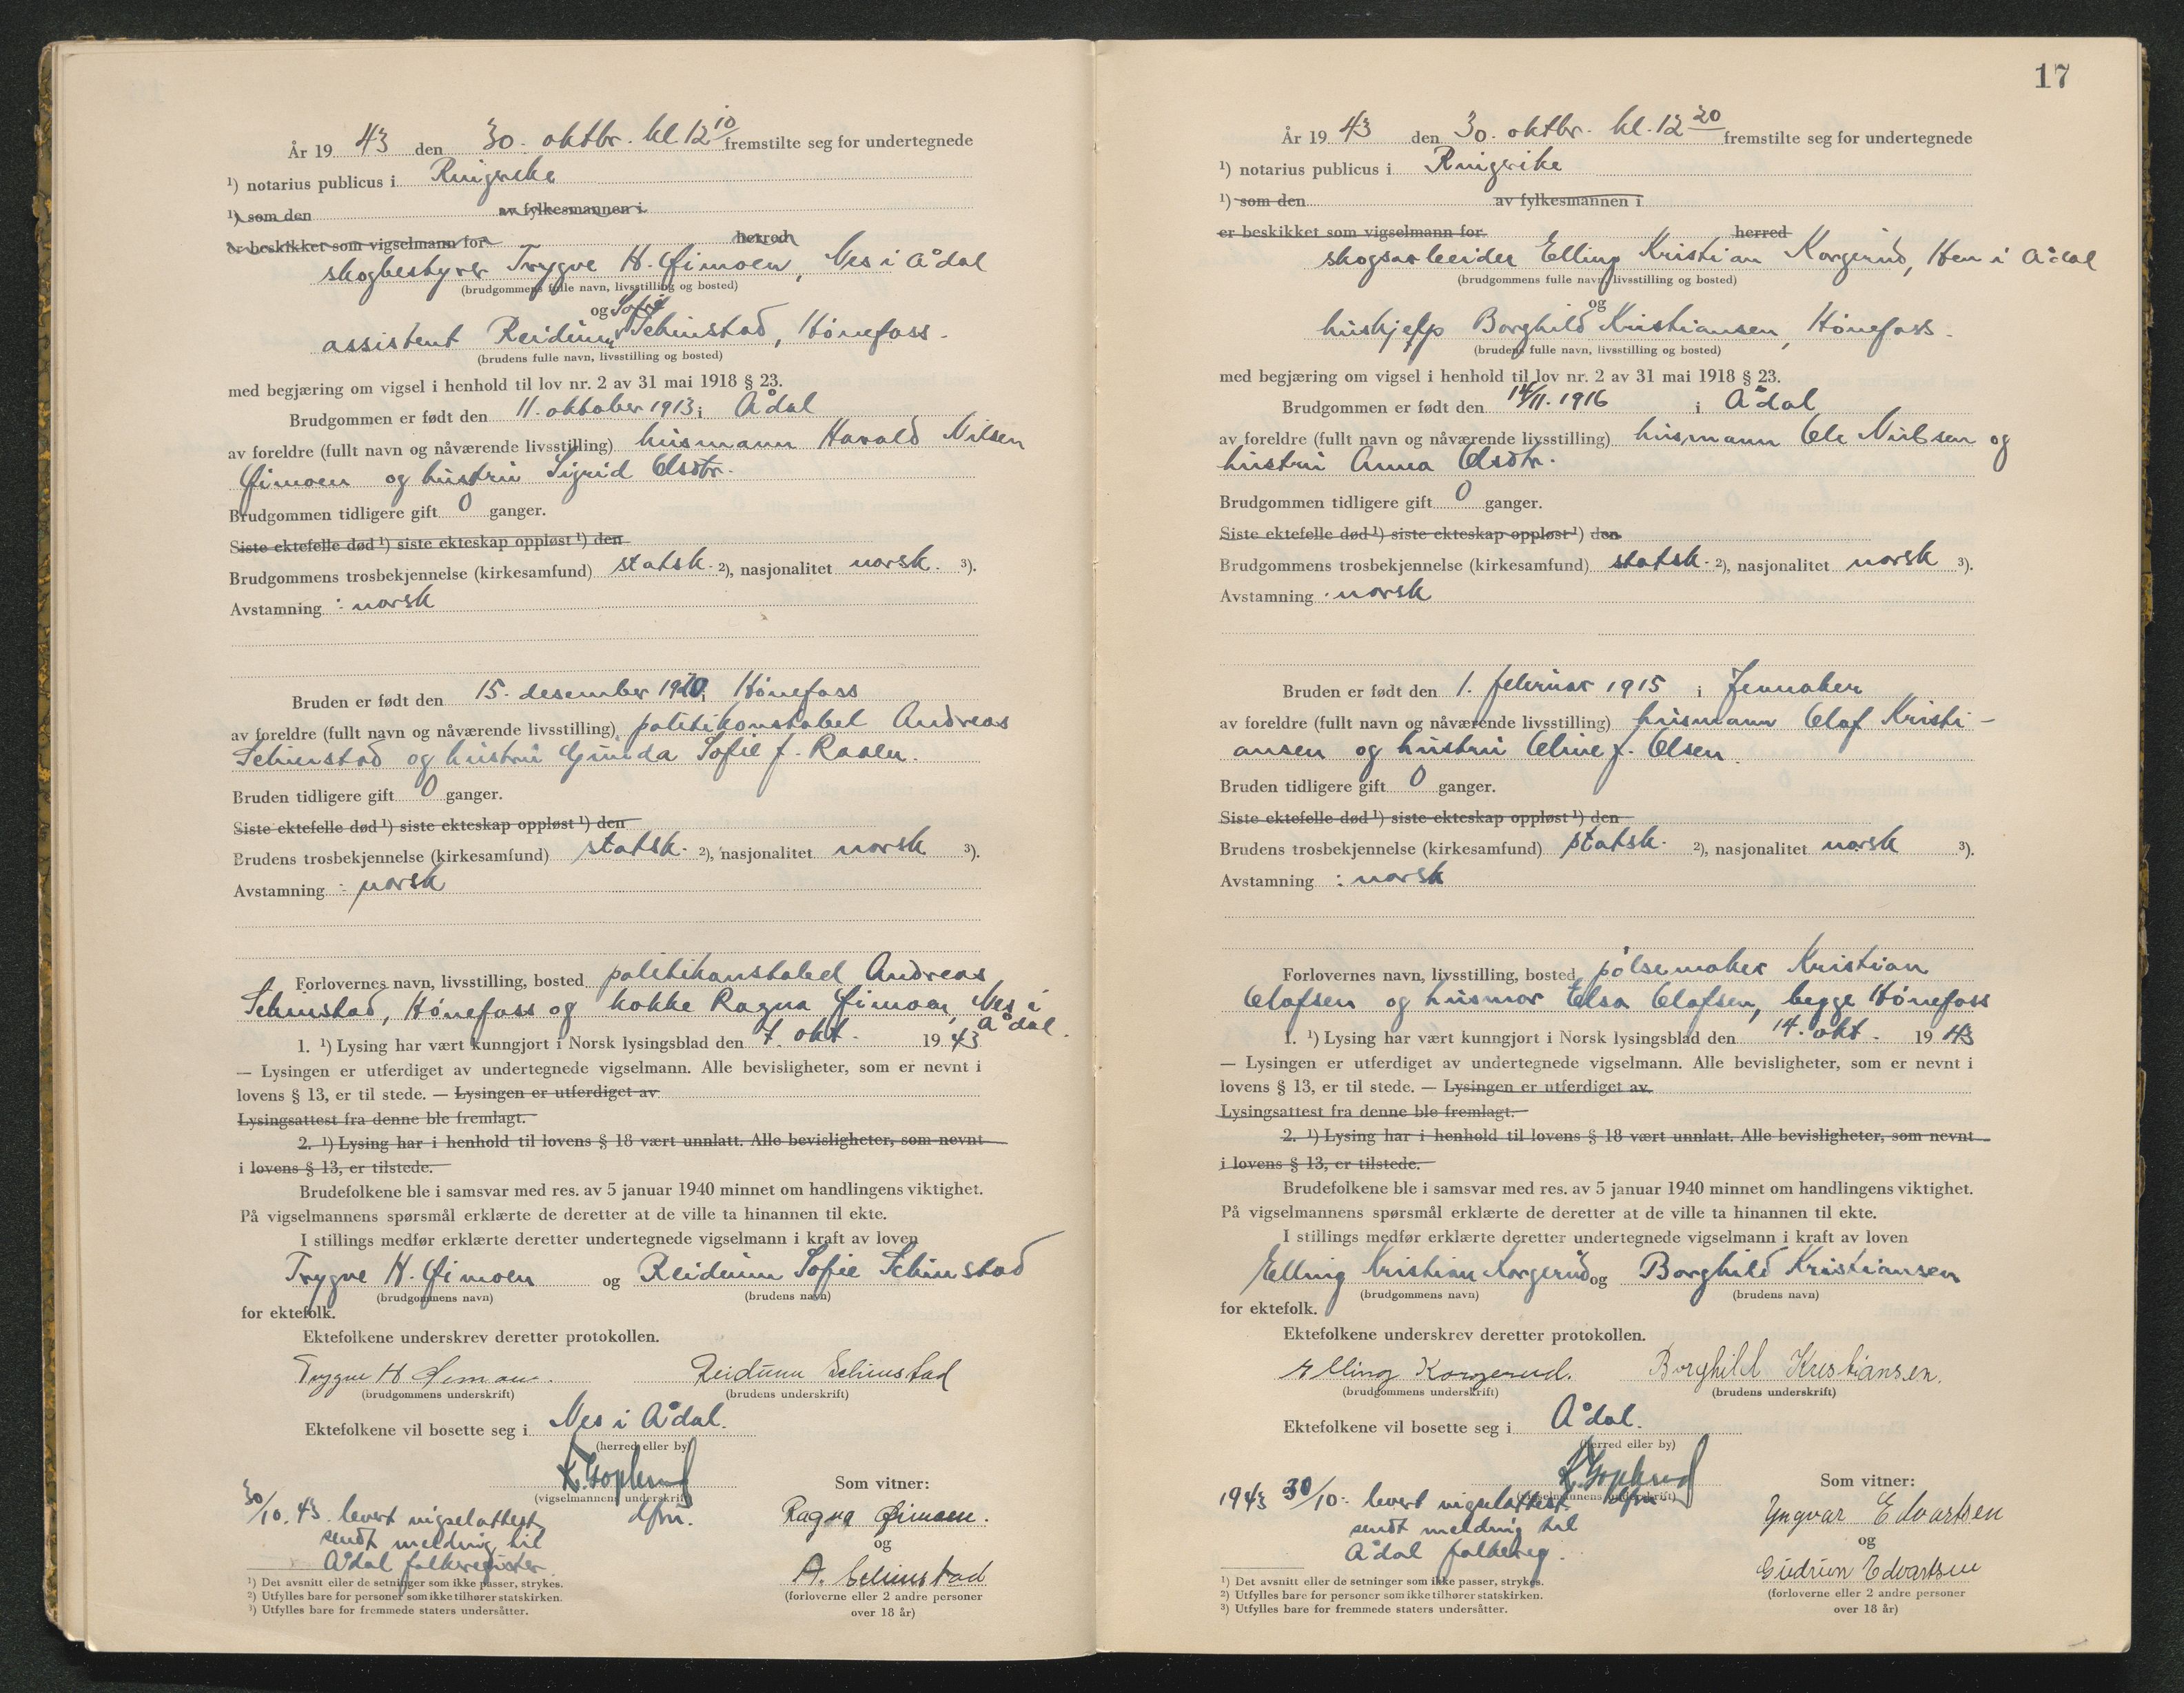 År 19 43 den 30. oktbr. kl. 12 10 fremstilte seg for undertegnede
¹) notarius publicus i Ringerike
¹) som den av fylkesmannen i
er beskikket som vigselmann for herred
skogbestyrer Trygve H. Øimoen, Nes i Ådal
(brudgommens fulle navn, livsstilling og bosted)
og Sofie
assistent Reidunn Schinstad, Hønefoss.
(brudens fulle navn, livsstilling og bosted)
med begjæring om vigsel i henhold til lov nr. 2 av 31 mai 1918 § 23.
Brudgommen er født den 11. oktober 1913 i Ådal
av foreldre (fullt navn og nåværende livsstilling) husmann Harald Nilsen
Øimoen og hustru Sigrid Olsdtr.
Brudgommen tidligere gift 0 ganger.
Siste ektefelle død ¹) siste ekteskap oppløst ¹) den
Brudgommens trosbekjennelse (kirkesamfund) statsk. ²), nasjonalitet norsk. ³).
Avstamning : norsk
Bruden er født den 15. desember 1920 i Hønefoss
av foreldre (fullt navn og nåværende livsstilling) politikonstabel Andreas
Schinstad og hustru Gunda Sofie f. Raaen.
Bruden tidligere gift 0 ganger.
Siste ektefelle død ¹) siste ekteskap oppløst ¹) den
Brudens trosbekjennelse (kirkesamfund) statsk. ²), nasjonalitet norsk ³).
Avstamning : norsk
Forlovernes navn, livsstilling, bosted politikonstabel Andreas
Schinstad, Hønefoss og kokke Ragna Øimoen, Nes i
Ådal.
1. ¹) Lysing har vært kunngjort i Norsk lysingsblad den 7. okt. 19 43
— Lysingen er utferdiget av undertegnede vigselmann. Alle bevisligheter, som er nevnt i
lovens § 13, er til stede. — Lysingen er utferdiget av
Lysingsattest fra denne ble fremlagt.
2. ¹) Lysing har i henhold til lovens § 18 vært unnlatt. Alle bevisligheter, som nevnt
i lovens § 13, er tilstede.
Brudefolkene ble i samsvar med res. av 5 januar 1940 minnet om handlingens viktighet.
På vigselmannens spørsmål erklærte de deretter at de ville ta hinannen til ekte.
I stillings medfør erklærte deretter undertegnede vigselmann i kraft av loven
Trygve H. Øimoen og Reidunn Sofie Schinstad
(brudgommens navn) (brudens navn)
for ektefolk.
Ektefolkene underskrev deretter protokollen.
Trygve H Øimoen. Reidunn Schinstad
(brudgommens underskrift) (brudens underskrift)
Ektefolkene vil bosette seg i Nes i Ådal.
(herred eller by)
K. Goplerud
(vigselmannens underskrift)
dfm.
30/10. 43. levert vigselattest
sendt melding til
Ådal folkeregister
Som vitner:
Ragna Øimoen.
og
A. Schinstad
(forloverne eller 2 andre personer
over 18 år)
¹) Det avsnitt eller de setninger som ikke passer, strykes.
²) Utfylles bare for personer som ikke tilhører statskirken.
³) Utfylles bare for fremmede staters undersåtter.
17
År 19 43 den 30. oktbr. kl. 12 20 fremstilte seg for undertegnede
¹) notarius publicus i Ringerike
¹) som den av fylkesmannen i
er beskikket som vigselmann for herred
skogsarbeider Elling Kristian Korgerud, Hen i Ådal
(brudgommens fulle navn, livsstilling og bosted)
og
hushjelp Borghild Kristiansen, Hønefoss.
(brudens fulle navn, livsstilling og bosted)
med begjæring om vigsel i henhold til lov nr. 2 av 31 mai 1918 § 23.
Brudgommen er født den 14/11. 1916 i Ådal
av foreldre (fullt navn og nåværende livsstilling) husmann Ole Nielsen og
hustru Anna Olsdtr.
Brudgommen tidligere gift 0 ganger.
Siste ektefelle død ¹) siste ekteskap oppløst ¹) den
Brudgommens trosbekjennelse (kirkesamfund) statsk. ²), nasjonalitet norsk ³).
Avstamning : norsk
Bruden er født den 1. februar 1915 i Jevnaker
av foreldre (fullt navn og nåværende livsstilling) husmann Olaf Kristi-
ansen og hustru Oline f. Olsen.
Bruden tidligere gift 0 ganger.
Siste ektefelle død ¹) siste ekteskap oppløst ¹) den
Brudens trosbekjennelse (kirkesamfund) statsk. ²), nasjonalitet norsk ³).
Avstamning : norsk
Forlovernes navn, livsstilling, bosted pølsemaker Kristian
Olafsen og husmor Elsa Olafsen, begge Hønefoss
1. ¹) Lysing har vært kunngjort i Norsk lysingsblad den 14. okt. 19 43
— Lysingen er utferdiget av undertegnede vigselmann. Alle bevisligheter, som er nevnt i
lovens § 13, er til stede. — Lysingen er utferdiget av
Lysingsattest fra denne ble fremlagt.
2. ¹) Lysing har i henhold til lovens § 18 vært unnlatt. Alle bevisligheter, som nevnt
i lovens § 13, er tilstede.
Brudefolkene ble i samsvar med res. av 5 januar 1940 minnet om handlingens viktighet.
På vigselmannens spørsmål erklærte de deretter at de ville ta hinannen til ekte.
I stillings medfør erklærte deretter undertegnede vigselmann i kraft av loven
Elling Kristian Korgerud og Borghild Kristiansen
(brudgommens navn) (brudens navn)
for ektefolk.
Ektefolkene underskrev deretter protokollen.
Elling Korgerud. Borghild Kristiansen.
(brudgommens underskrift) (brudens underskrift)
Ektefolkene vil bosette seg i Ådal.
(herred eller by)
K. Goplerud
(vigselmannens underskrift)
1943 30/10. levert vigselattest. dfm.
sendt melding til
Ådal folkereg.
Som vitner:
Yngvar Edvartsen
og
Gudrun Edvartsen
(forloverne eller 2 andre personer
over 18 år)
¹) Det avsnitt eller de setninger som ikke passer, strykes.
²) Utfylles bare for personer som ikke tilhører statskirken.
³) Utfylles bare for fremmede staters undersåtter.